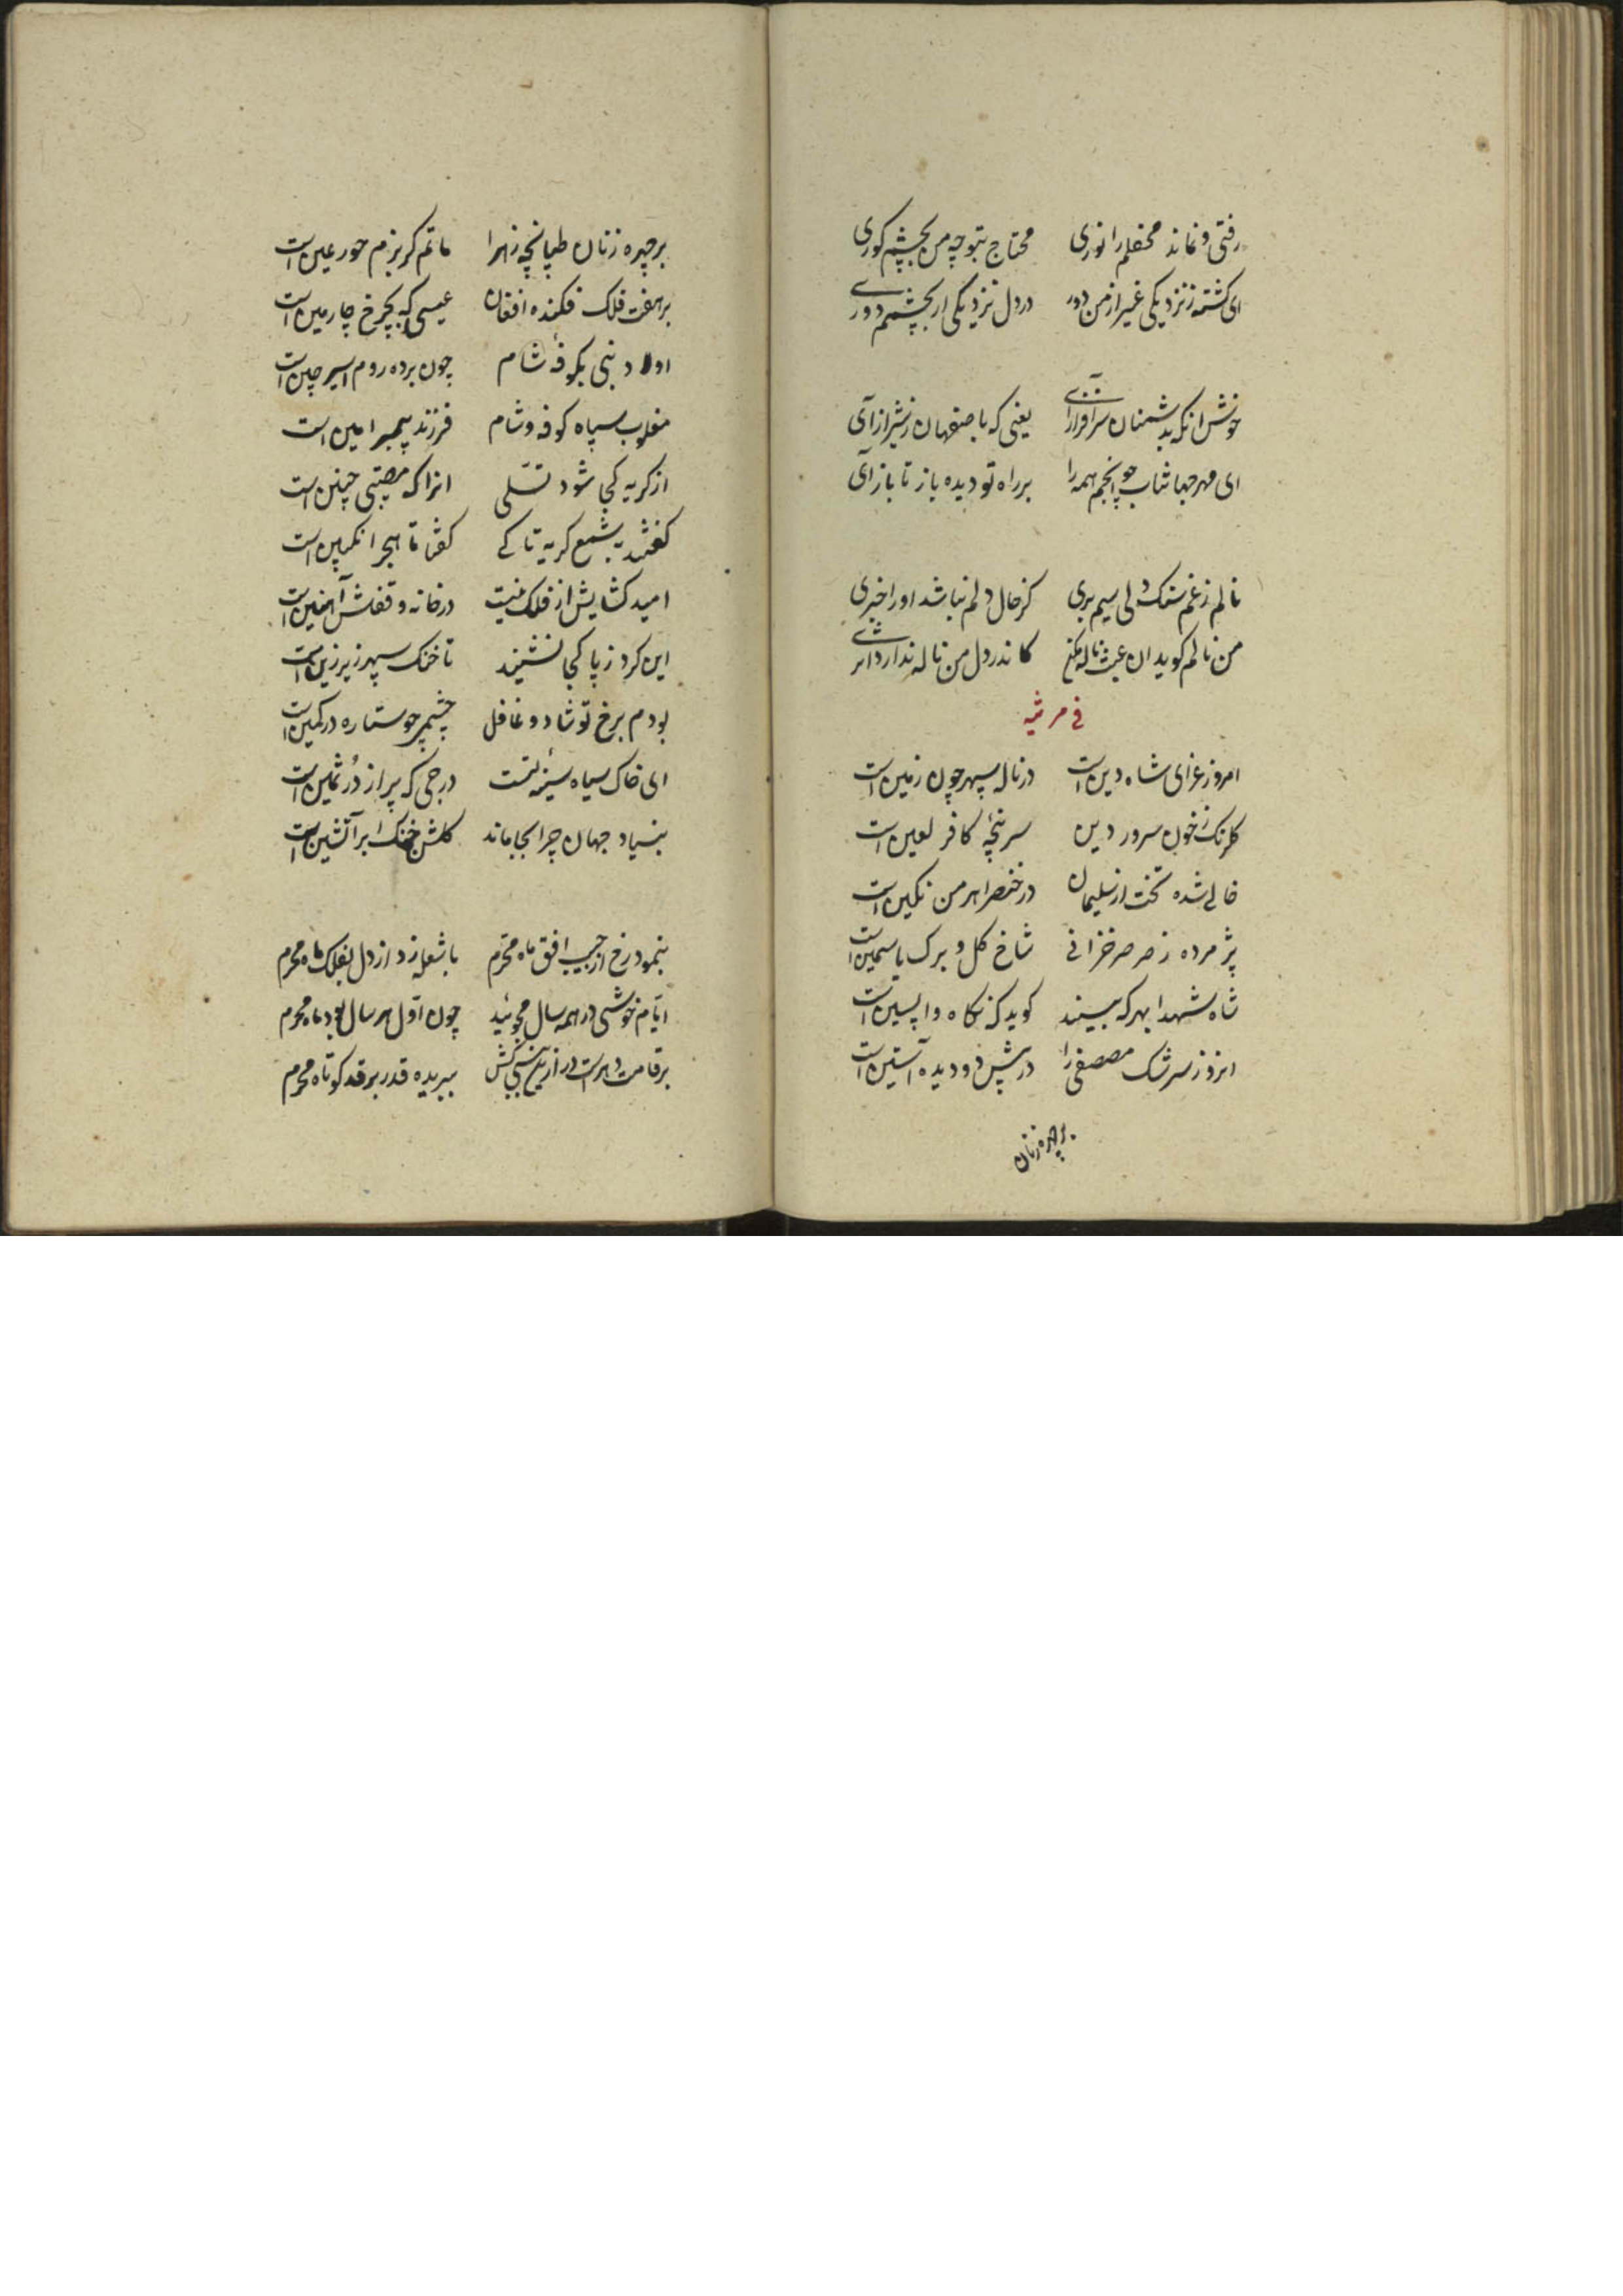 رفتی و نماند محفلم را نوری محتاج بتو چه من بچشم کوری
ای کشته ز نزدیکی غیر از من دور در دل نزدیکی ار بچشمم دوری
خوش آنکه بدشمنان سرافراز آی یعنی که باصفهان ز شیراز آی
ای مهر جهانتاب چو انجم همه را بر راه تو دیده باز تا باز آی
نالم ز غم سنک دلی سیم بری کز حال دلم نباشد او را خبری
من نالم کوید ان عبث ناله مکن کاندر دل من ناله ندارد اثری
فی مرثیه
امروز عزای شاه دین است در ناله سپهر چون زمین است
کلرنک ز خون سرور دین سرپنجهٔ کافر لعین است
خالی شده تخت از سلیمان در خنصر اهرمن نکین است
پژمرده ز صرصر خزانی شاخ کل و برک یاسمین است
شاه شهدا بهر که بیند کوید که نکاه واپسین است
امروز سرشک مصطفی را در پیش دو دیده آستین است
بر چهره زنان
بر چهره زنان طپانچه زهرا ماتم کر بزم حور عین است
بر هفت فلک فکنده افغان عیسی که بچرخ چارمین است
اولاد نبی بکوفه شام چون برده روم اسیر چین است
مغلوب سپاه کوفه و شام فرزند پیمبر امین است
از کریه کجا شود تسلی انرا که مصیبتی چنین است
کفتند بشمع کریه تا کی کفتا تا هجر انکبین است
امید کشایش از فلک نیست در خانه و قفلش آهنین است
این کرد ز پا کجا نشیند تا خنک سپهر زیر زین است
بودم برخ تو شاد و غافل چشمم چو ستاره در کمین است
ای خاک سیاه سینه تست درجی که پر از دُر ثمین است
بنیاد جهان چرا بجا ماند کلشن خنک ابر آتشین است
بنمود رخ از جیب افق ماه محرم با شعله زد از دل بفلک ماه محرم
ایام خوشی در همه سال مجوئید چون اول هر سال بود ماه محرم
بر قامت دهر است در از ببریده قدر بر قد کوتاه محرم